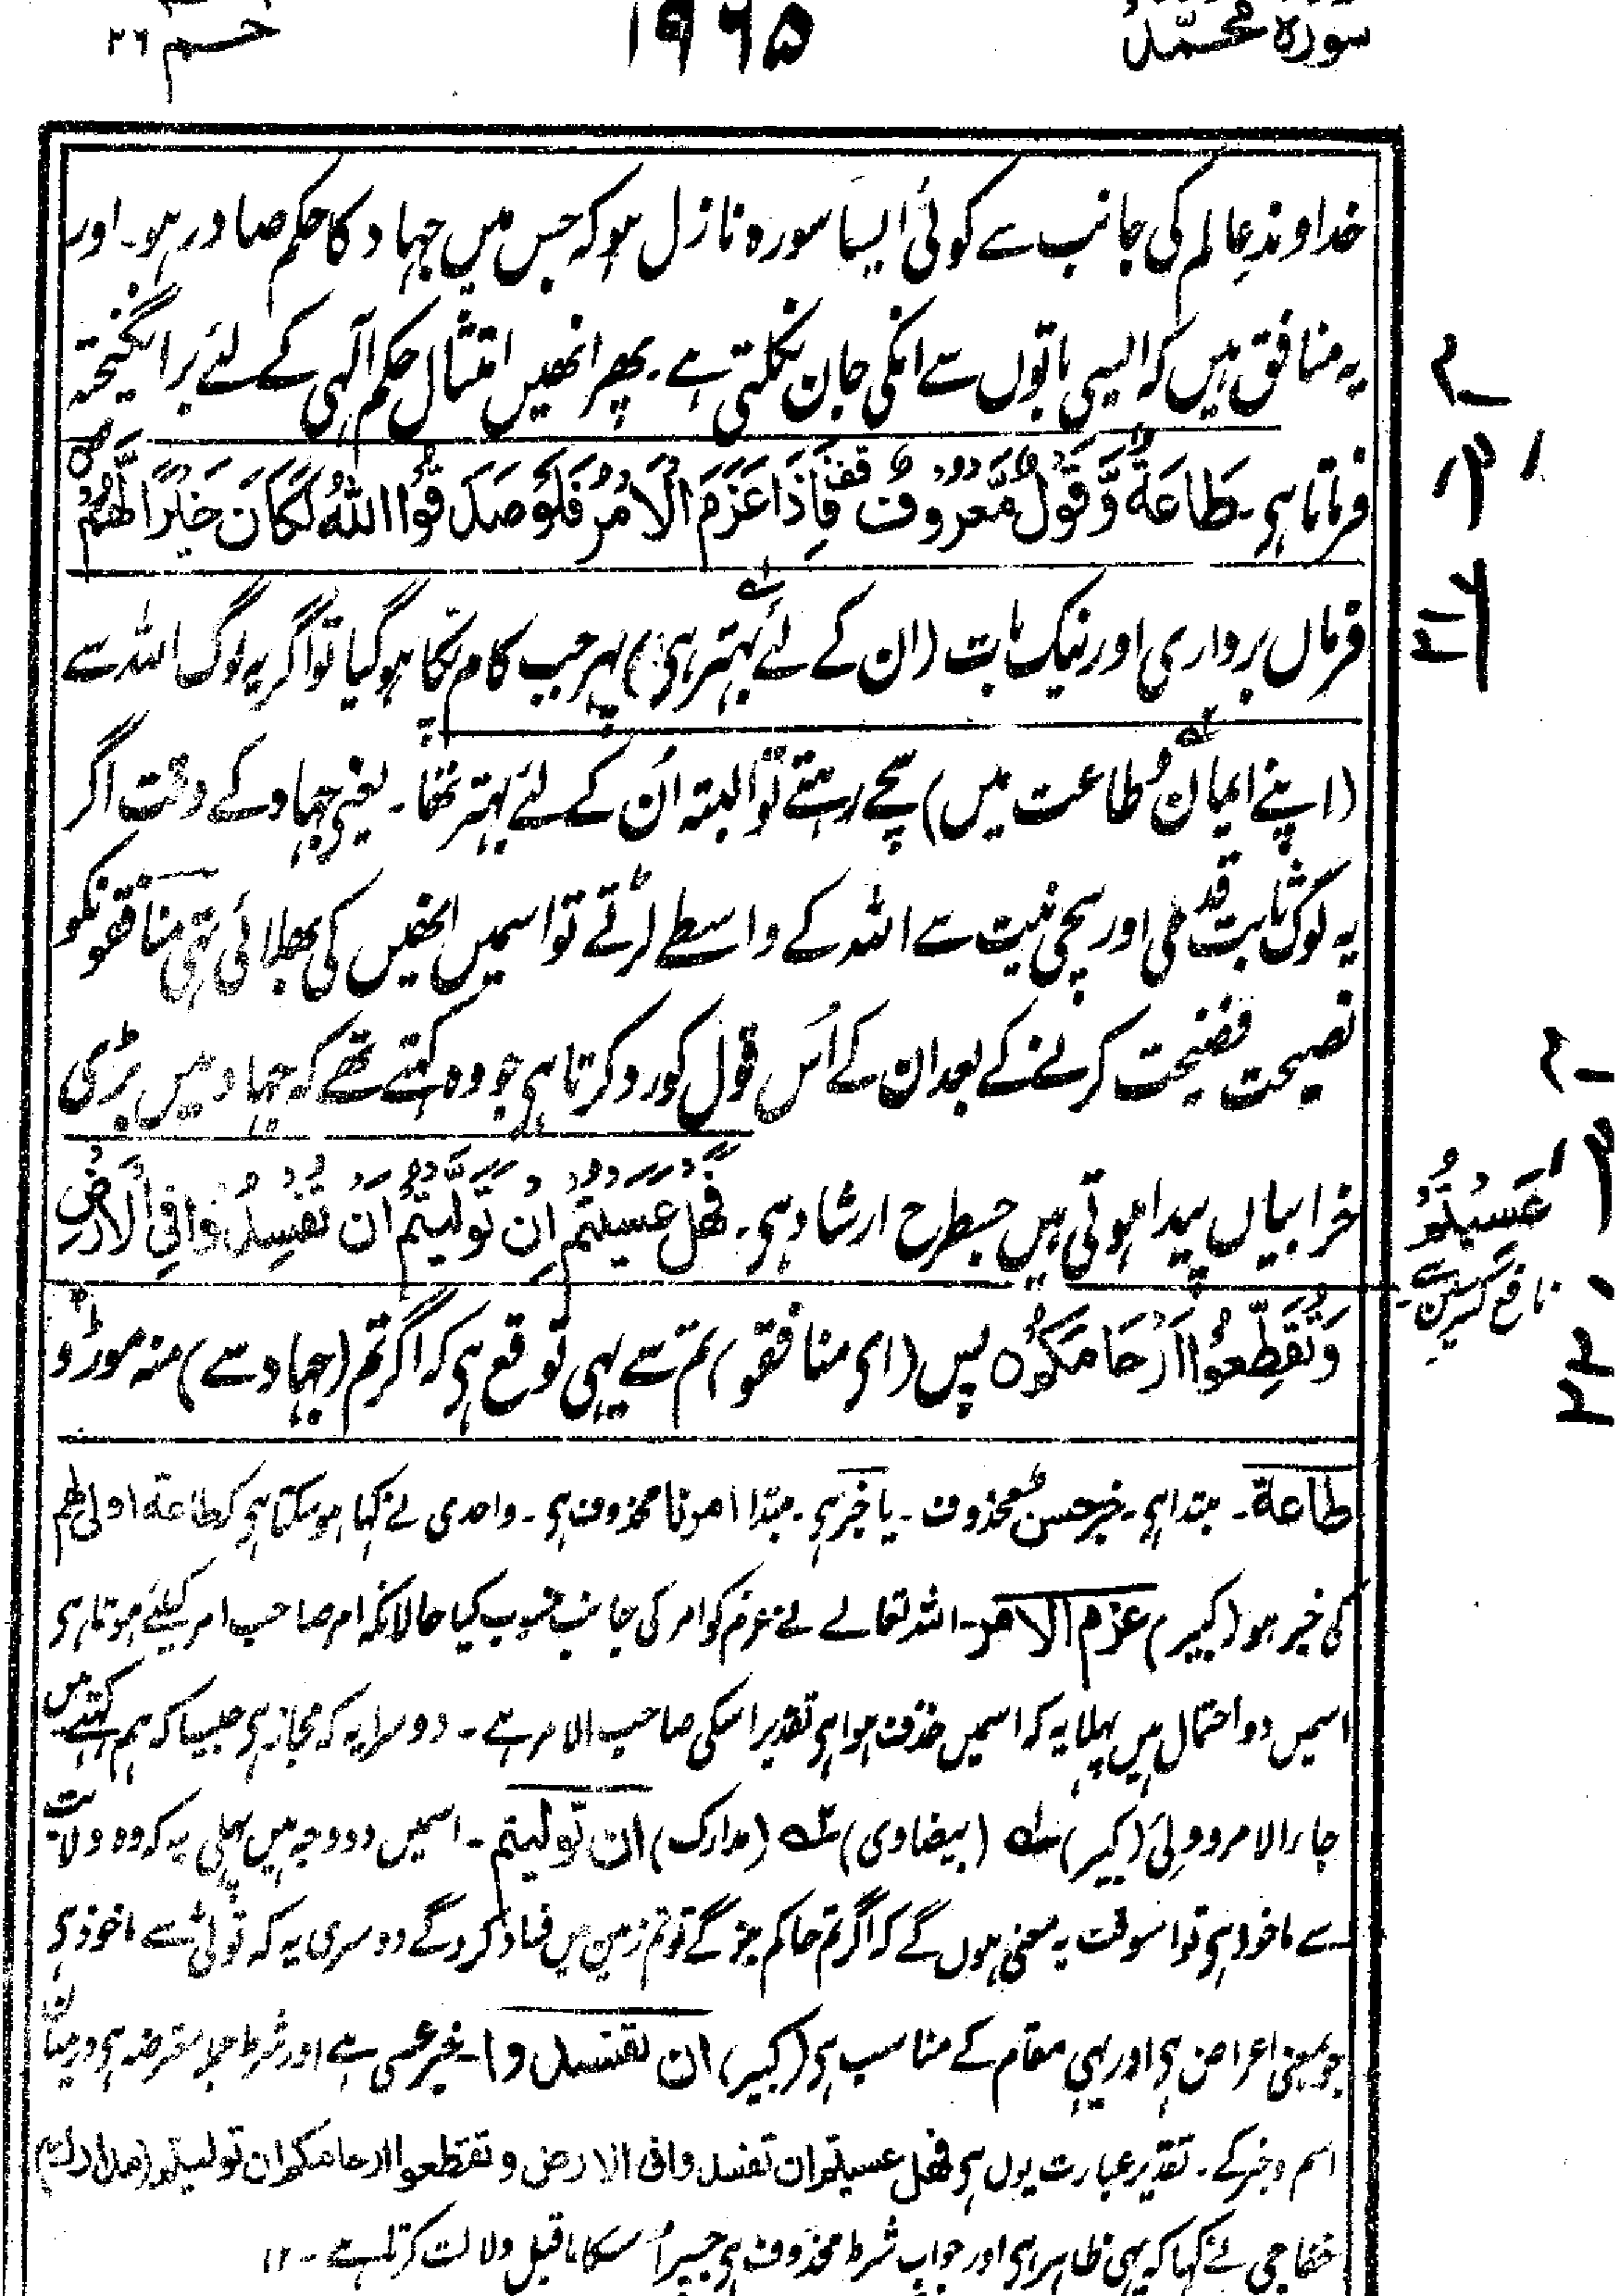 سورہ محمد
۱۹۶۵
حٰم ۲۶
خداوندِ عالم کی جانب سے کوئی ایسا سورہ نازل ہو کہ جس میں جہاد کا حکم صادر ہو۔ اور
یہ منافق ہیں کہ ایسی باتوں سے انکی جان نکلتی ہے۔ پھر انھیں امتثال حکم الٰہی کے لئے برانگیختہ
فرماتا ہی۔ طَاعَةٌ وَّقَوْلٌ مَّعْرُوْفٌ فَاِذَا عَزَمَ الْاَمْرُ فَلَوْ صَدَقُوا اللّٰهَ لَكَانَ خَيْرًا لَّهُمْ
فرماں برداری اور نیک بات (ان کے لئے بہتر ہی) پھر جب کام پکا ہو گیا تو اگر یہ لوگ اللہ سے
(اپنے ایمان و طاعت میں) سچے رہتے تو البتہ ان کے لئے بہتر تھا۔ یعنی جہاد کے وقت اگر
یہ لوگ ثابت قدمی اور سچی نیت سے اللہ کے واسطے لڑتے تو اسمیں انھیں کی بھلائی تھی منافقونکو
نصیحت فضیحت کرنے کے بعد ان کے اُس قول کو رد کرتا ہی جو وہ کہتے تھے کہ جہاد میں بڑی
خرابیاں پیدا ہوتی ہیں جسطرح ارشاد ہی۔ فَهَلْ عَسَيْتُمْ اِنْ تَوَلَّيْتُمْ اَنْ تُفْسِدُوْا فِی الْاَرْضِ
وَتُقَطِّعُوْا اَرْحَامَكُمْ ہ پس (ای منافقو) تم سے یہی توقع ہی کہ اگر تم (جہاد سے) منہ موڑو
عَسِيْتُمْ
نافع
طاعة۔ مبتدا ہی۔ خبر حسن محذوف۔ یا خبر ہی۔ مبتدا امرنا محذوف ہی۔ واحدی نے کہا ہو سکتا ہی کہ طاعة اولی لهم
کی خبر ہو (کبیر) عزم الامر۔ اللہ تعالے نے عزم کو امر کی جانب منسوب کیا حالانکہ امر صاحب امر کیلئے ہوتا ہی
اسمیں دو احتمال ہیں پہلا یہ کہ اسمیں حذف ہوا ہی تقدیر اسکی صاحب الامر ہے۔ دوسرا یہ کہ مجاز ہی جیسا کہ ہم کہتے ہیں
جاء الامر وولی (کبیر) (بیضاوی) (مدارک) ان تولیتم۔ اسمیں دو وجہ ہیں پہلی یہ کہ وہ ولایت
سے ماخوذ ہی تو اسوقت یہ معنی ہوں گے کہ اگر تم حاکم ہوگے تو تم زمین میں فساد کروگے دوسری یہ کہ تولّی سے ماخوذ ہی
جو بمعنی اعراض ہی اور یہی مقام کے مناسب ہی (کبیر) ان تفسدوا۔ خبر عسیٰ ہے اور شرط جملہ معترضہ ہی درمیان
اسم و خبر کے۔ تقدیر عبارت یوں ہی فهل عسیتم ان تفسدوا فی الارض وتقطعوا ارحامکم ان تولیتم (مدارک)
خفاجی نے کہا کہ یہی ظاہر ہی اور جواب شرط محذوف ہی جسپر اسکا ماقبل دلالت کرتا ہے۔ ۱۲